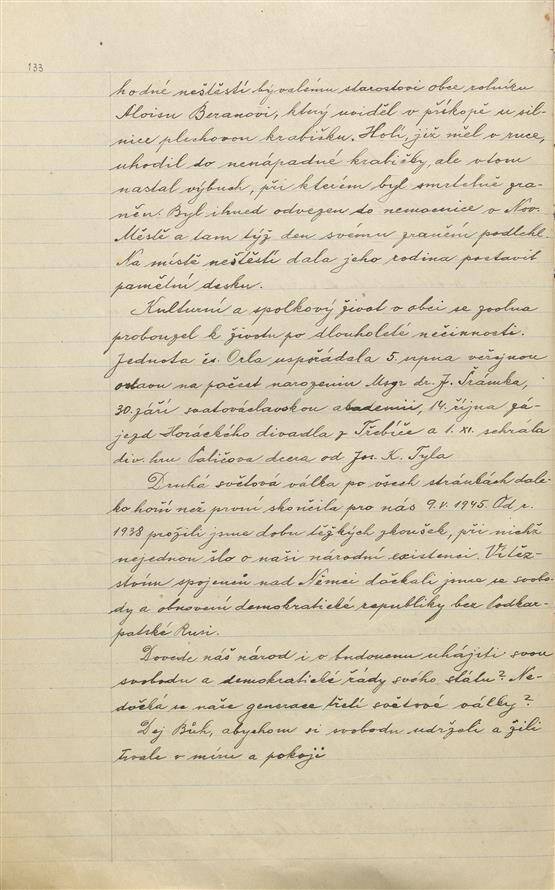 133
hodné neštěstí bývalému starostovi obce rolníku
Aloisu Beranovi, který uviděl v příkopě u sil-
nice plechovou krabičku. Holí, jíž měl v ruce,
uhodil do nenápadné krabičky, ale vtom
nastal výbuch, při kterém byl smrtelně zra-
něn. Byl ihned odvezen do nemocnice v Nov.
Městě a tam týž den svému zranění podlehl.
Na místě neštěstí dala jeho rodina postavit
pamětní desku.
Kulturní a spolkový život v obci se zvolna
probouzel k životu po dlouholeté nečinnosti.
Jednota čs. Orla uspořádala 5. srpna veřejnou
oslavu na počest narozenin Msgr dr. J. Šrámka,
30. září svatováclavskou akademii, 14. října zá-
jezd Horáckého divadla z Třebíče a 1. XI. sehrála
div. hru Paličova dcera od Jos. K. Tyla
Druhá světová válka po všech stránkách dale-
ko horší než první skončila pro nás 9. V. 1945. Od r.
1938 prožili jsme dobu těžkých zkoušek, při nichž
nejednou šlo o naši národní existenci. Vítěz-
stvím spojenců nad Němci dočkali jsme se svobo-
dy a obnovení demokratické republiky bez Podkar-
patské Rusi.
Dovede náš národ i v budoucnu uhájiti svou
svobodu a demokratické řády svého státu? Ne-
dočká se naše generace třetí světové války?
Dej Bůh, abychom si svobodu udrželi a žili
trvale v míru a pokoji